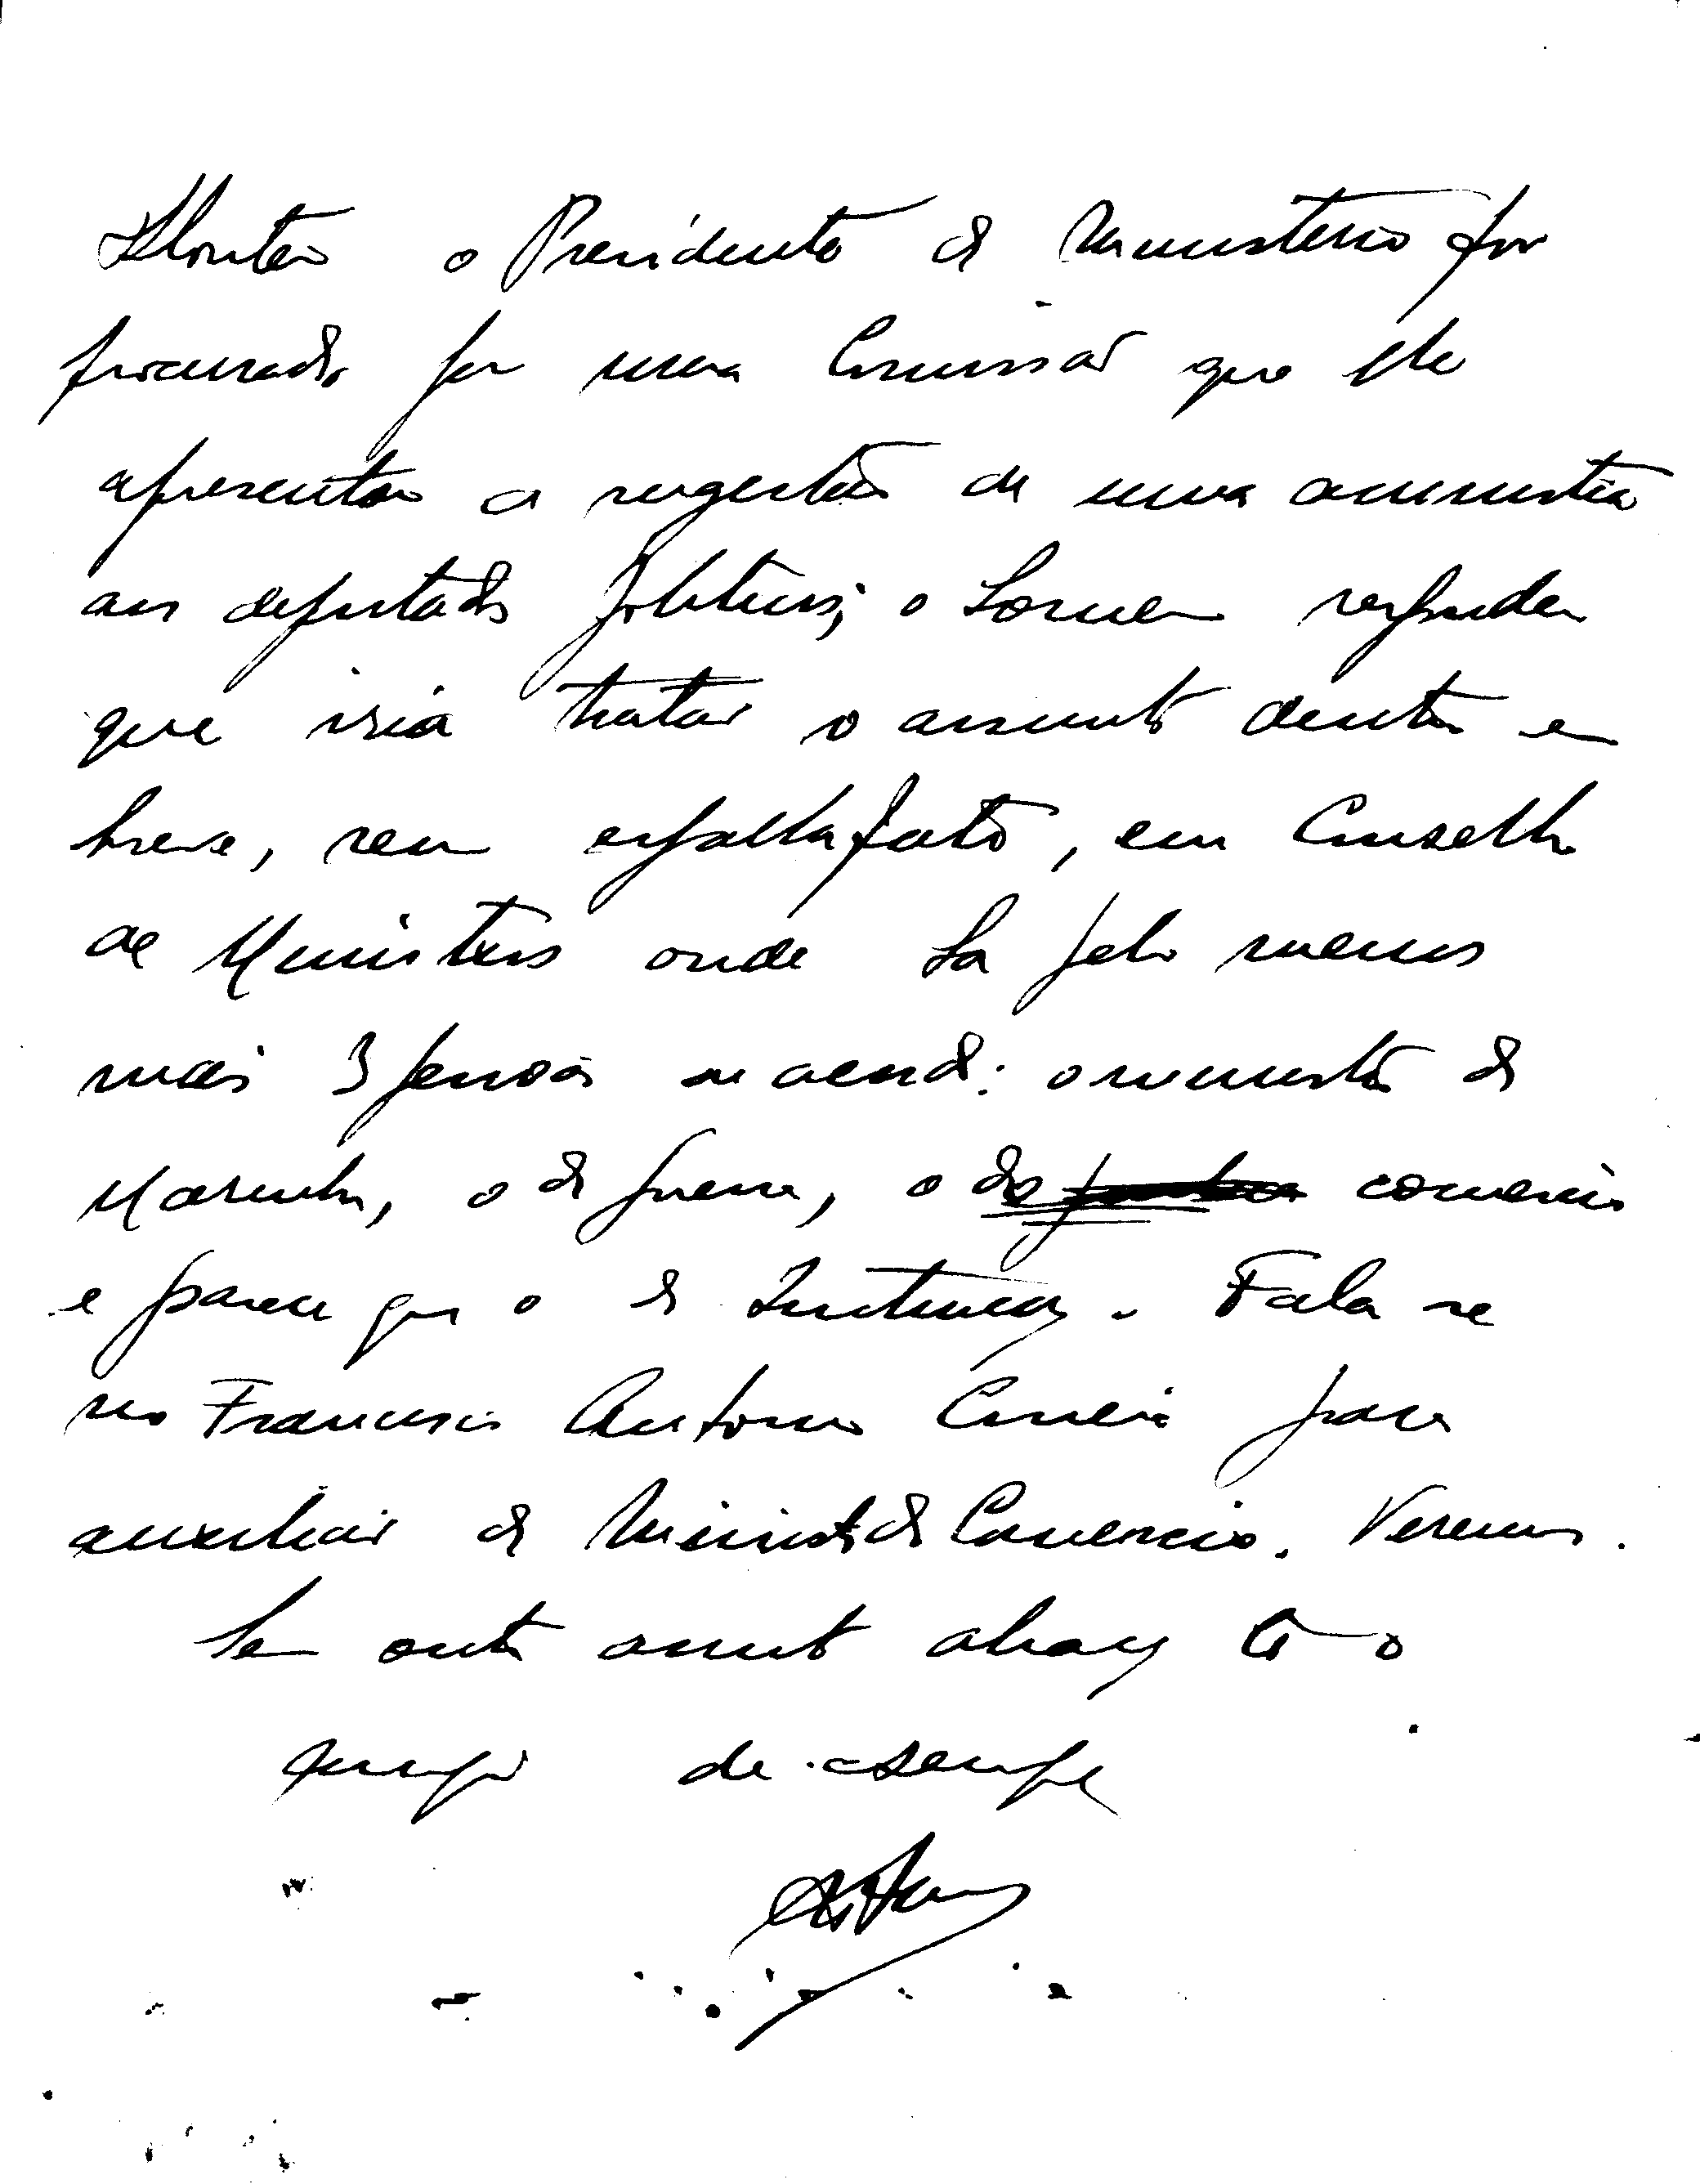 Hontem o Presidente do Ministerio foi
procurado por uma Comissão que lhe
apresentou a sugestão de uma amnistia
aos deportados politicos; o homem respondeu
que iria tratar o assunto dentro em
breve, sem espalhafato, em Conselho
de Ministros onde ha pelo menos
mais 3 pessoas de acordo: o ministro da
Marinha, o da guerra, o do comercio
e parece que o da Instrução. Fala-se
no Francisco Antonio Correia para
auxiliar do Ministro do Comercio. Veremos.
Sem outro assunto abraça-te o
amigo de sempre